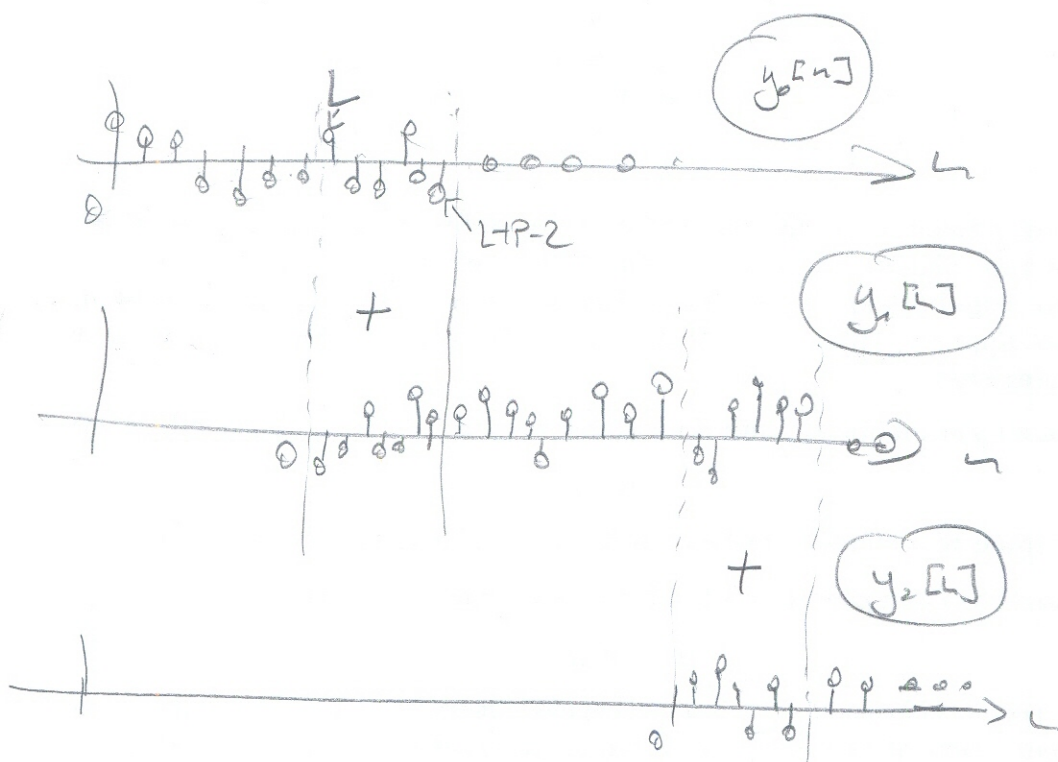 y₀[n]
L
n
0
L+P-2
+
y₁[n]
0
n
+
y₂[n]
0
n